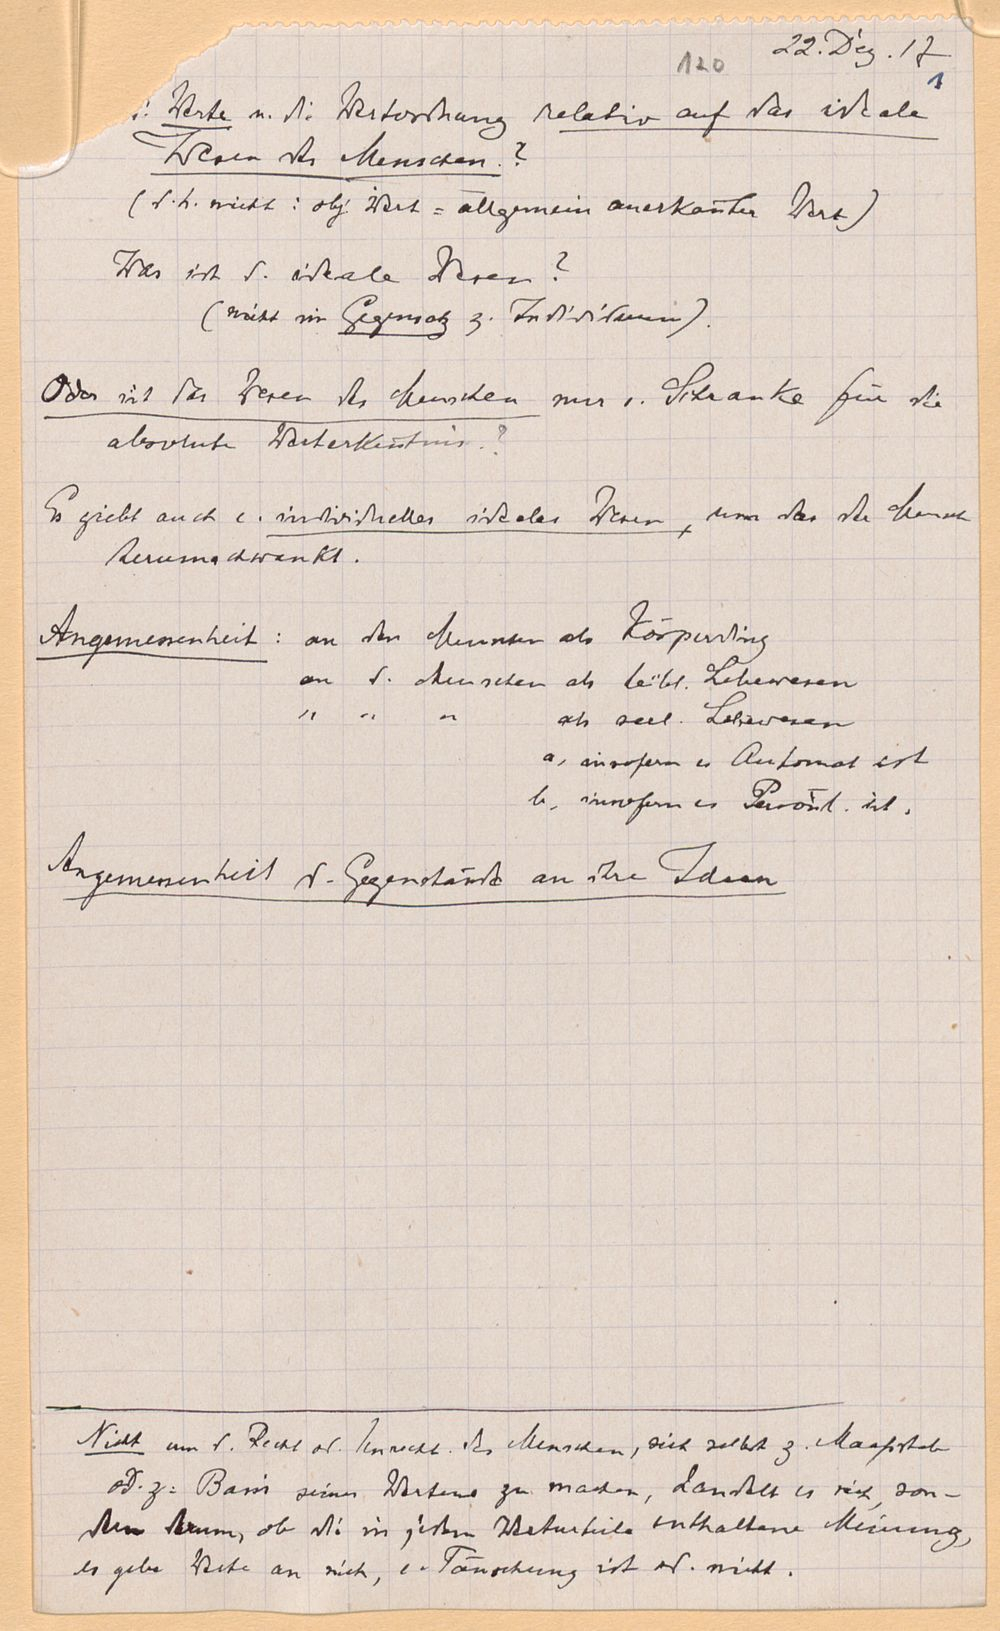 120
22. Dez. 17
1
: Werte u. di Wertordnung relativ auf das ideale
Wesen des Menschen.?
(d.h. nicht : obj. Wert = allgemein anerkanter Wert)
Was ist d. ideale Wesen?
(nicht im Gegensatz z. Individuum).
Oder ist das Wesen des Menschen nur e. Schranke für die
absolute Werterkentnis.?
Es giebt auch e. individuelles ideales Wesen, um das der Mensch
herumschwankt.
Angemessenheit : an den Menschen als Körperding
an d. Menschen als leibl. Lebewesen
" " " als seel. Lebewesen
a, insofern es Automat ist
b, insofern es Persönl. ist.
Angemessenheit d. Gegenstände an ihre Ideen
Nicht um d. Recht od. Unrecht des Menschen, sich selbst z. Maaßstab
od. z. Basis seines Wertens zu machen, handelt es sich, son-
dern darum, ob die in jedem Werturteile enthaltene Meinung,
es gebe Werte an sich, e. Täuschung ist od. nicht.